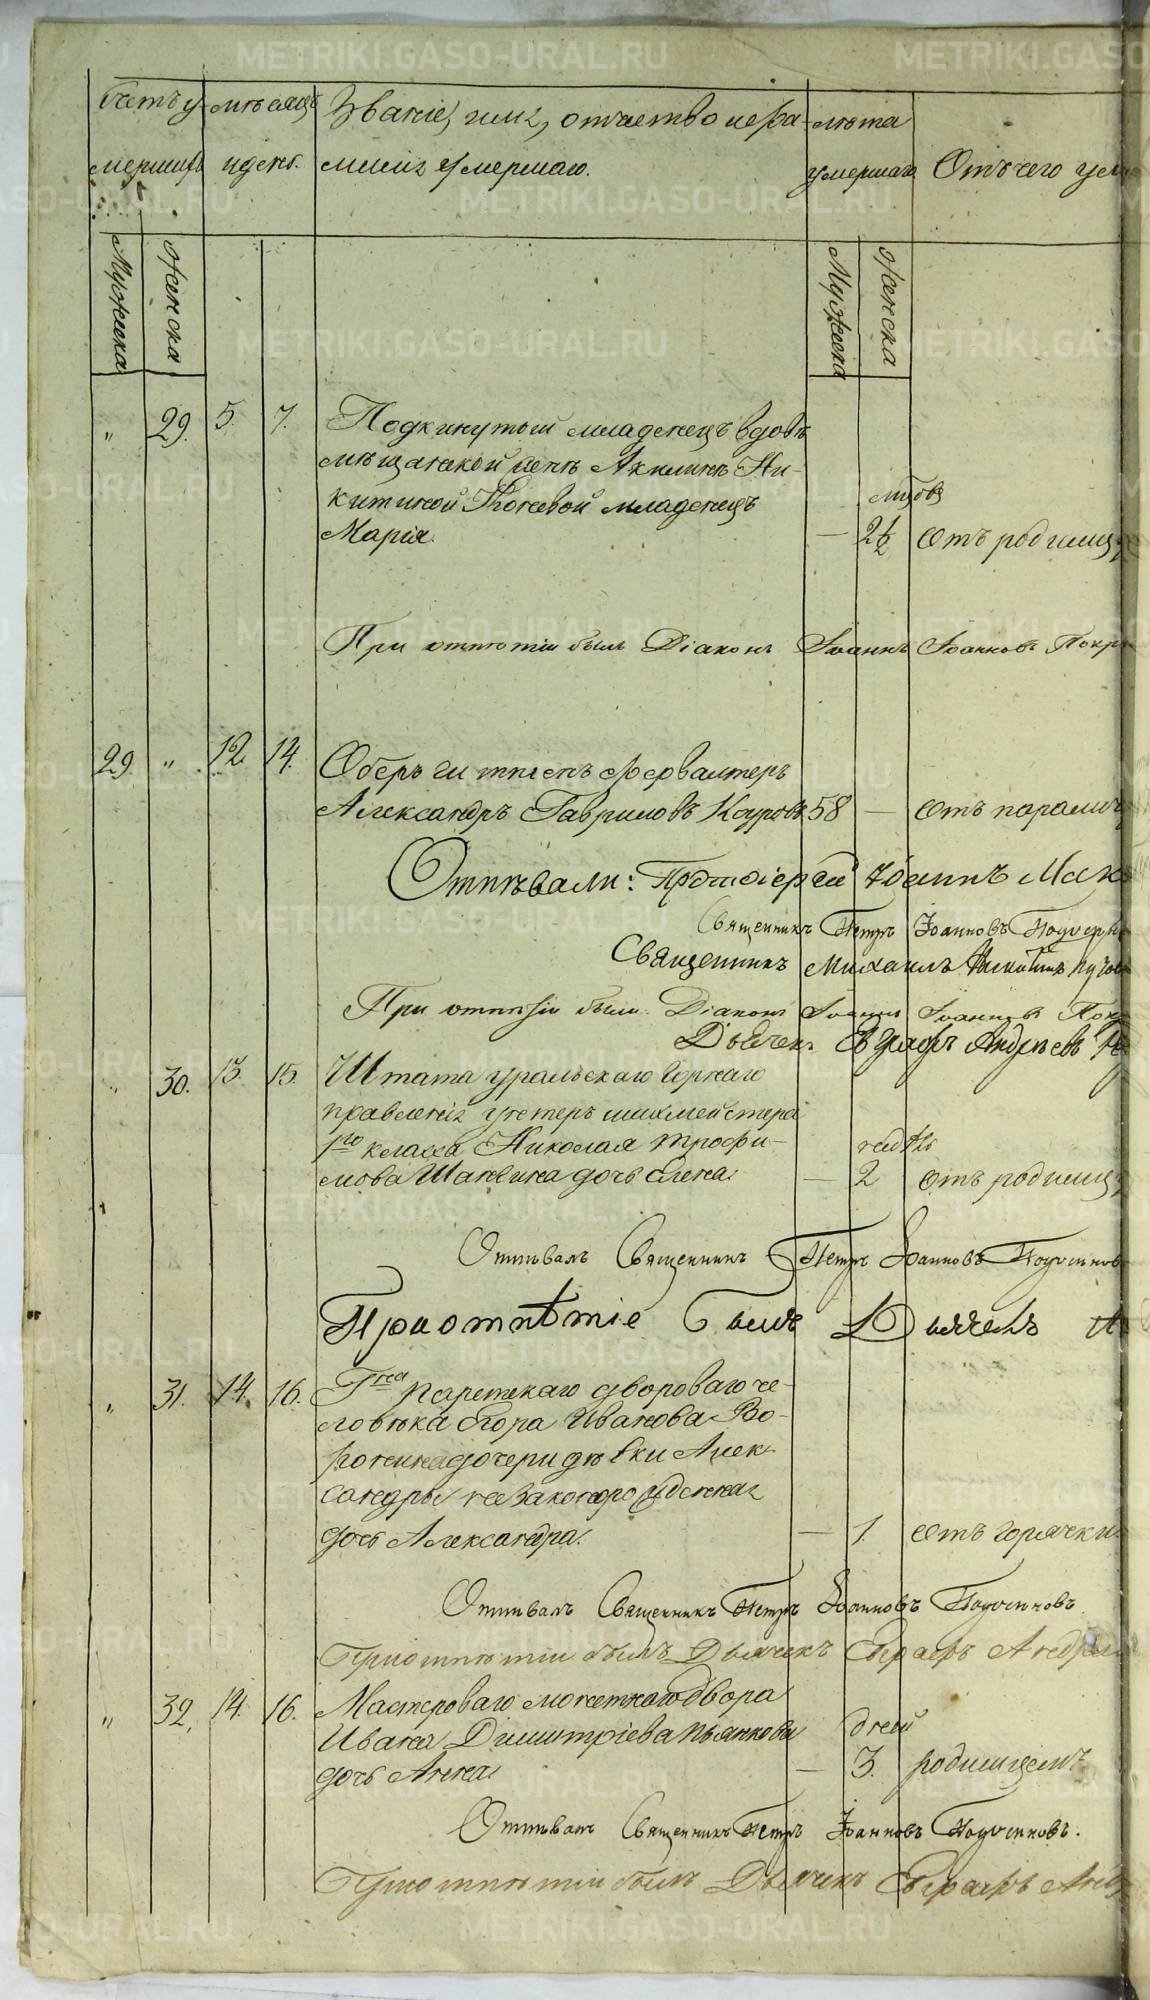 METRIKI.GASO-URAL.RU
Счетъ у- мѣсяцъ Званіе, имя, отчество и фа- лѣта
мершихъ и день. милія умершаго. умершаго Отъ чего уме
Мужеска женска Мужеска женска
" 29. 5. 7. Подкинутый младенецъ вдовѣ
мѣщанской женѣ Акилинѣ Ни-
китиной младенецъ
Марія. — 2½ отъ родимц
При отпѣтіи былъ Діаконъ Іоаннъ Іоанновъ Покр
29. " 12. 14. Оберъ гиттенъ фервалтеръ
Александръ Гавриловъ 58 — отъ паралич
Отпѣвали: Протоіерей Іоаннъ Мак
Священникъ Петръ Іоанновъ
Священникъ Михаилъ
При отпѣтіи были Діаконъ Іоаннъ Іоанновъ Пок
Дьячекъ Евграфъ Андрѣевъ
" 30. 13. 15. Штата уральскаго горнаго
правленія унтеръ шихмейстера
1го класса Николая Трофи- недѣль
мова дочь Елена — 2 отъ родимц
Отпѣвалъ Священникъ Петръ Іоанновъ
При отпѣтіе былъ Дьячекъ
" 31. 14. 16. Г-на двороваго че-
ловѣка Егора Иванова Во-
ронина дочери дѣвки Алек-
сандры незаконорожденная
дочь Александра. — 1. отъ горячки
Отпѣвалъ Священникъ Петръ Іоанновъ
При отпѣтіи былъ Дьячекъ Евграфъ Андре
" 32. 14. 16. Мастероваго монетнаго двора
Ивана Димитріева Пьянкова дней
дочь Анна — 3. родимцемъ
Отпѣвалъ Священникъ Петръ Іоанновъ
При отпѣтіи былъ Дьячекъ Евграфъ Анд